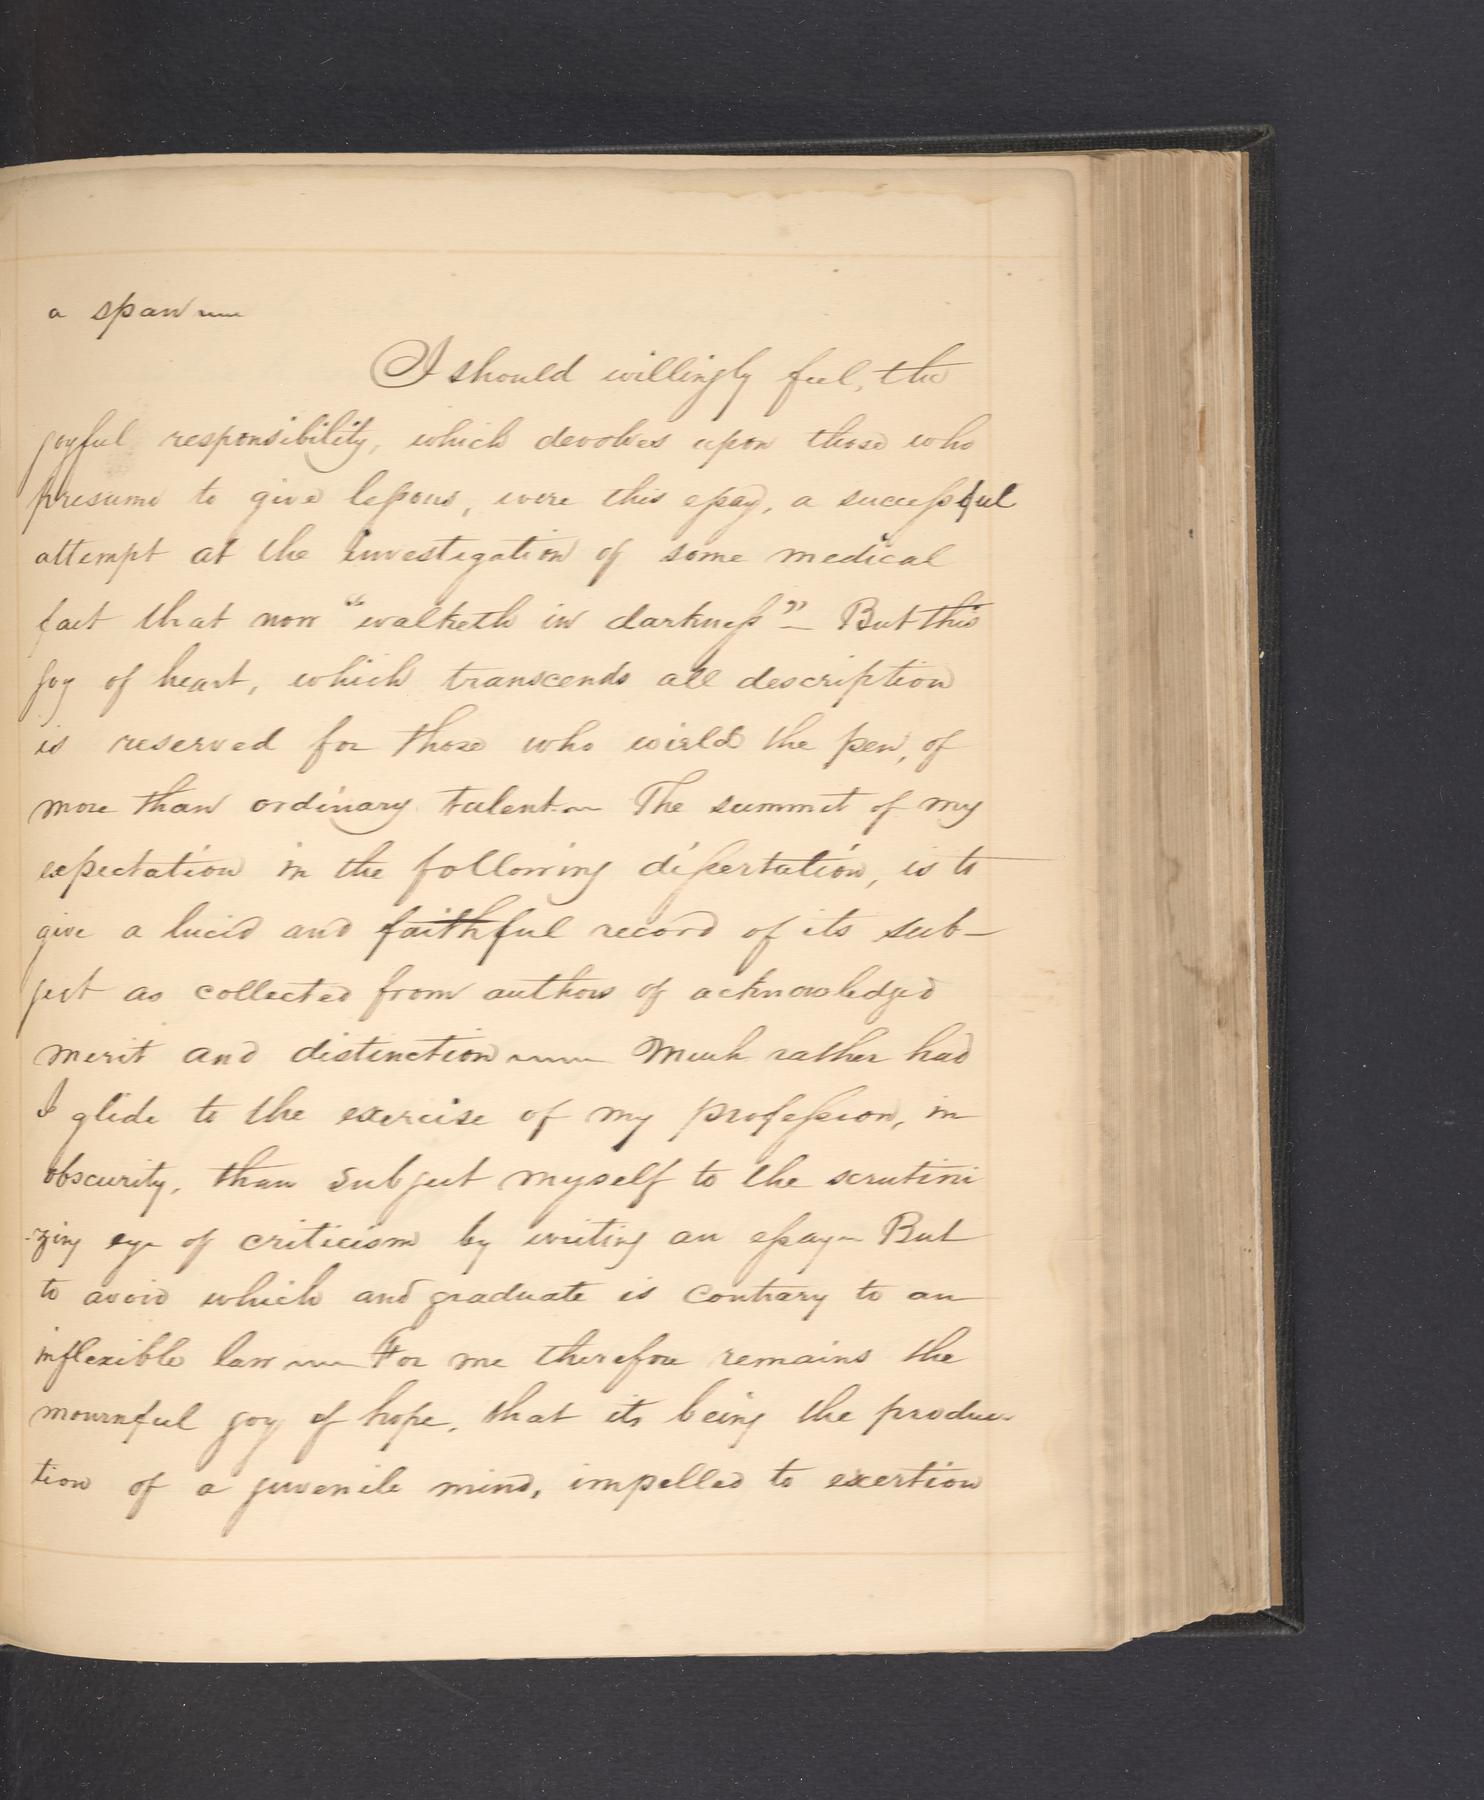 a span
I should willingly feel, the
joyful responsibility, which devolves upon those who
presume to give lessons, were this essay, a successful
attempt at the investigation of some medical
fact that now "walketh in darkness" — But this
joy of heart, which transcends all description
is reserved for those who wield the pen, of
more than ordinary talent — The summit of my
expectation in the following dissertation, is to
give a lucid and faithful record of its sub-
ject as collected from authors of acknowledged
merit and distinction — Much rather had
I glide to the exercise of my profession, in
obscurity, than subject myself to the scrutini
-zing eye of criticism by writing an essay — But
to avoid which and graduate is contrary to an
inflexible law — For me therefore remains the
mournful joy of hope, that its being the produc-
tion of a juvenile mind, impelled to exertion